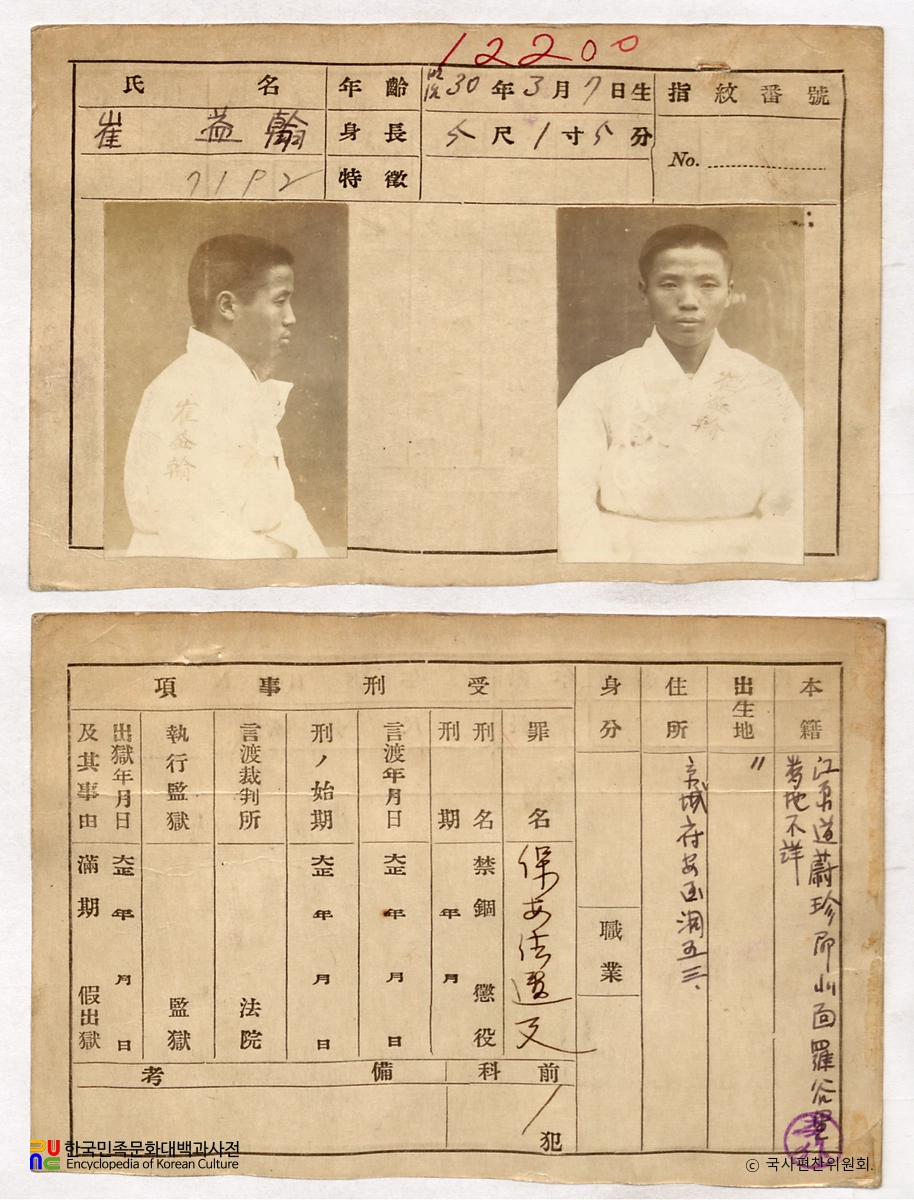 12200
氏名
崔益翰
7192
年齡
30年3月7日生
身長
5尺1寸5分
特徵
指紋番號
No.
崔益翰
本籍
江原道蔚珍郡
面羅谷里
番地不詳
出生地
〃
住所
京城府安国洞五三
身分
職業
受刑事項
罪名
保安法違反
刑名
禁錮 懲役
刑期
年 月
言渡年月日
大正 年 月 日
刑ノ始期
大正 年 月 日
言渡裁判所
法院
執行監獄
監獄
出獄年月日及其事由
大正 年 月 日
滿期 假出獄
前科
犯
備考
한국민족문화대백과사전
Encyclopedia of Korean Culture
© 국사편찬위원회.